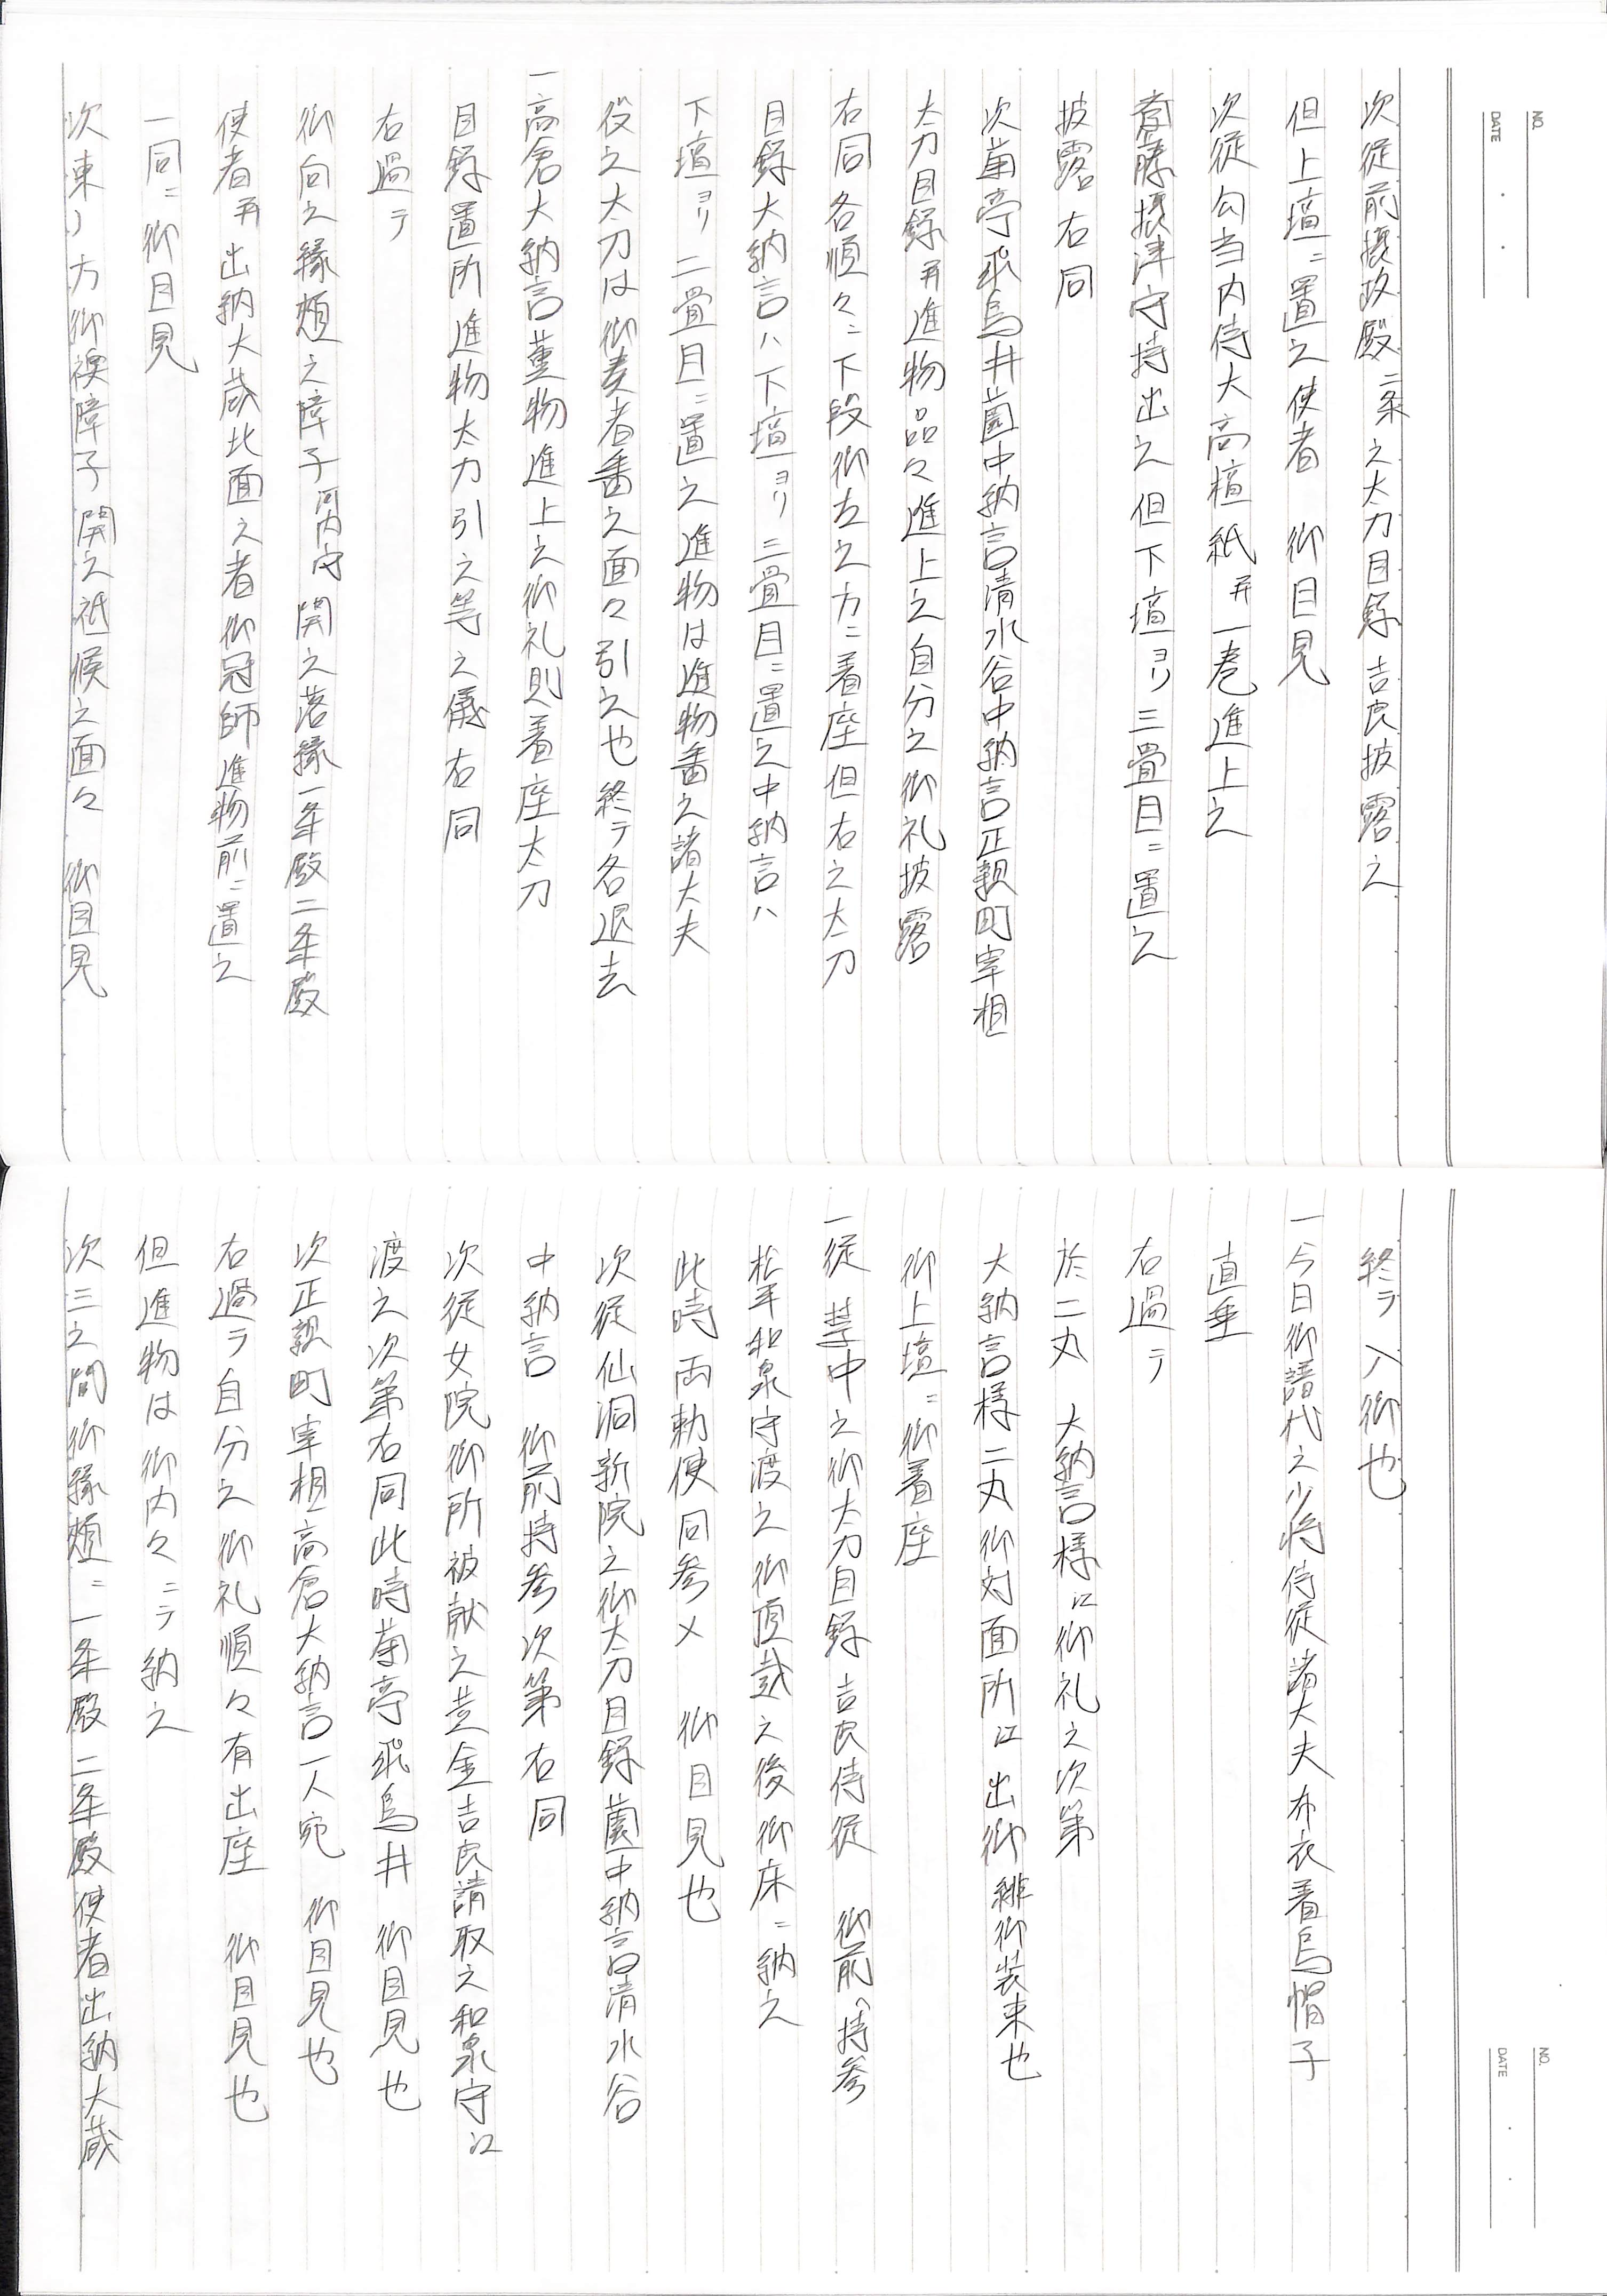 NO.
DATE
次従前摂政殿二条之太刀目録吉良披露之
但上壇ニ置之使者 御目見
次従勾当内侍大高檀紙并一巻進上之
斎藤摂津守持出之但下壇ヨリ三畳目ニ置之
披露右同
次菊亭飛鳥井園中納言清水谷中納言正親町宰相
太刀目録并進物品々進上之自分之御礼披露
右同各順々ニ下段御左之方ニ着座但右之太刀
目録大納言ハ下壇ヨリ三畳目ニ置之中納言ハ
下壇ヨリ二畳目ニ置之進物は進物番之諸大夫
役之太刀は御奏者番之面々引之也終テ各退去
一高倉大納言薫物進上之御礼則着座太刀
目録置所進物太刀引之等之儀右同
右過テ
御向之縁頬之障子河内守開之落縁一条殿二条殿
使者并出納大蔵北面之者御冠師進物前ニ置之
一同ニ御目見
次東ノ方御襖障子開之祗候之面々 御目見
NO.
DATE
終テ入御也
一今日御譜代之少将侍従諸大夫布衣着烏帽子
直垂
右過テ
於二丸 大納言様江御礼之次第
大納言様二丸御対面所江出御緋御装束也
御上壇ニ御着座
一従 禁中之御太刀目録吉良侍従 御前へ持参
松平和泉守渡之御頂戴之後御床ニ納之
此時両勅使同参〆 御目見也
次従仙洞新院之御太刀目録園中納言清水谷
中納言 御前持参次第右同
次従女院御所被献之黄金吉良請取之和泉守江
渡之次第右同此時菊亭飛鳥井 御目見也
次正親町宰相高倉大納言一人宛 御目見也
右過テ自分之御礼順々有出座 御目見也
但進物は御内々ニテ納之
次三之間御縁頬ニ一条殿二条殿使者出納大蔵